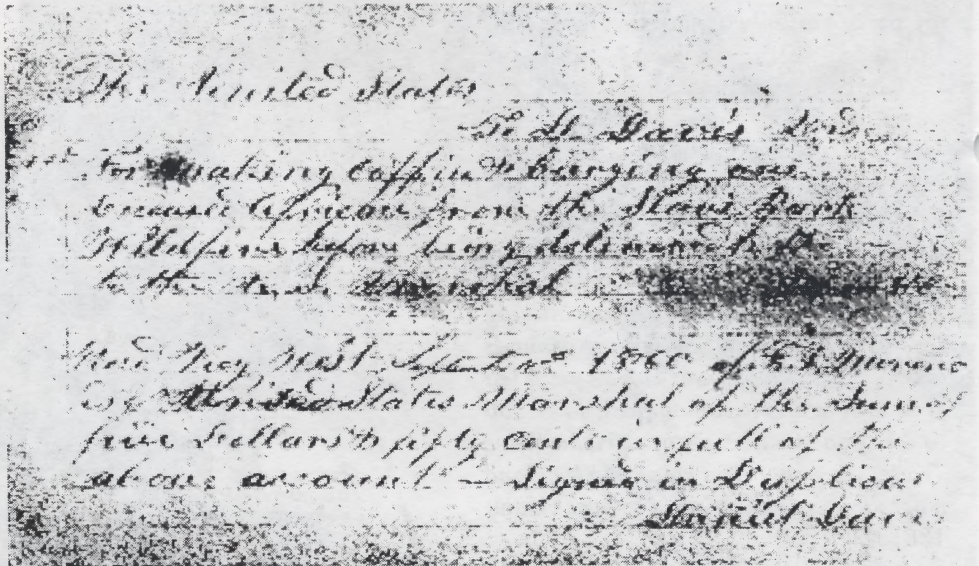 The United States
To D. Davis Dr.
For making coffin & burying one
African from the Slave Bark
Wildfire before being delivered
to the U.S. Marshal
Recd Key West 1860 of F. J. Moreno
Esq United States Marshal of the Sum of
five dollars & fifty cents in full of the
above account — Signed in Duplicate
Daniel Davis